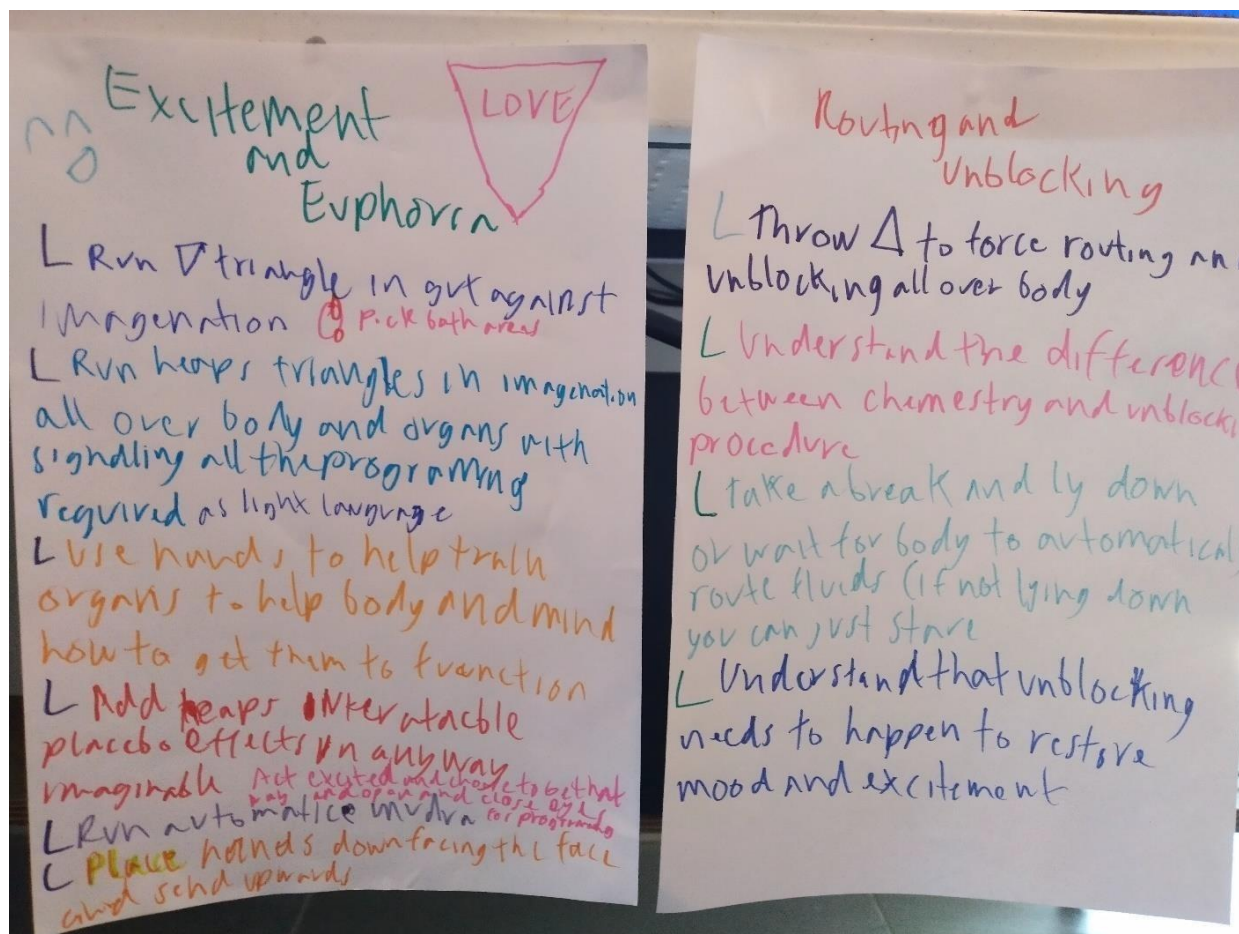 Excitement
and
Euphoria
LOVE
L Run ▽ triangle in gut against
imagenation pick both areas
L Run heaps triangles in imagenation
all over body and organs with
signalling all the programing
required as light language
L Use hands to help train
organs to help body and mind
how to get them to function
L Add heaps
placebo effects in anyway
imaginable Act excited and chose to be that
way and open and close eyes
for programing
L Run automatice mudra
L Place hands down facing the face
and send upwards
Routing and
Unblocking
L Throw △ to force routing an
unblocking all over body
L Understand the differenc
between chemestry and unblocki
procedure
L take a break and ly down
or wait for body to automatical
route fluids (if not lying down
you can just stare
L Understand that unblocking
needs to happen to restore
mood and excitement